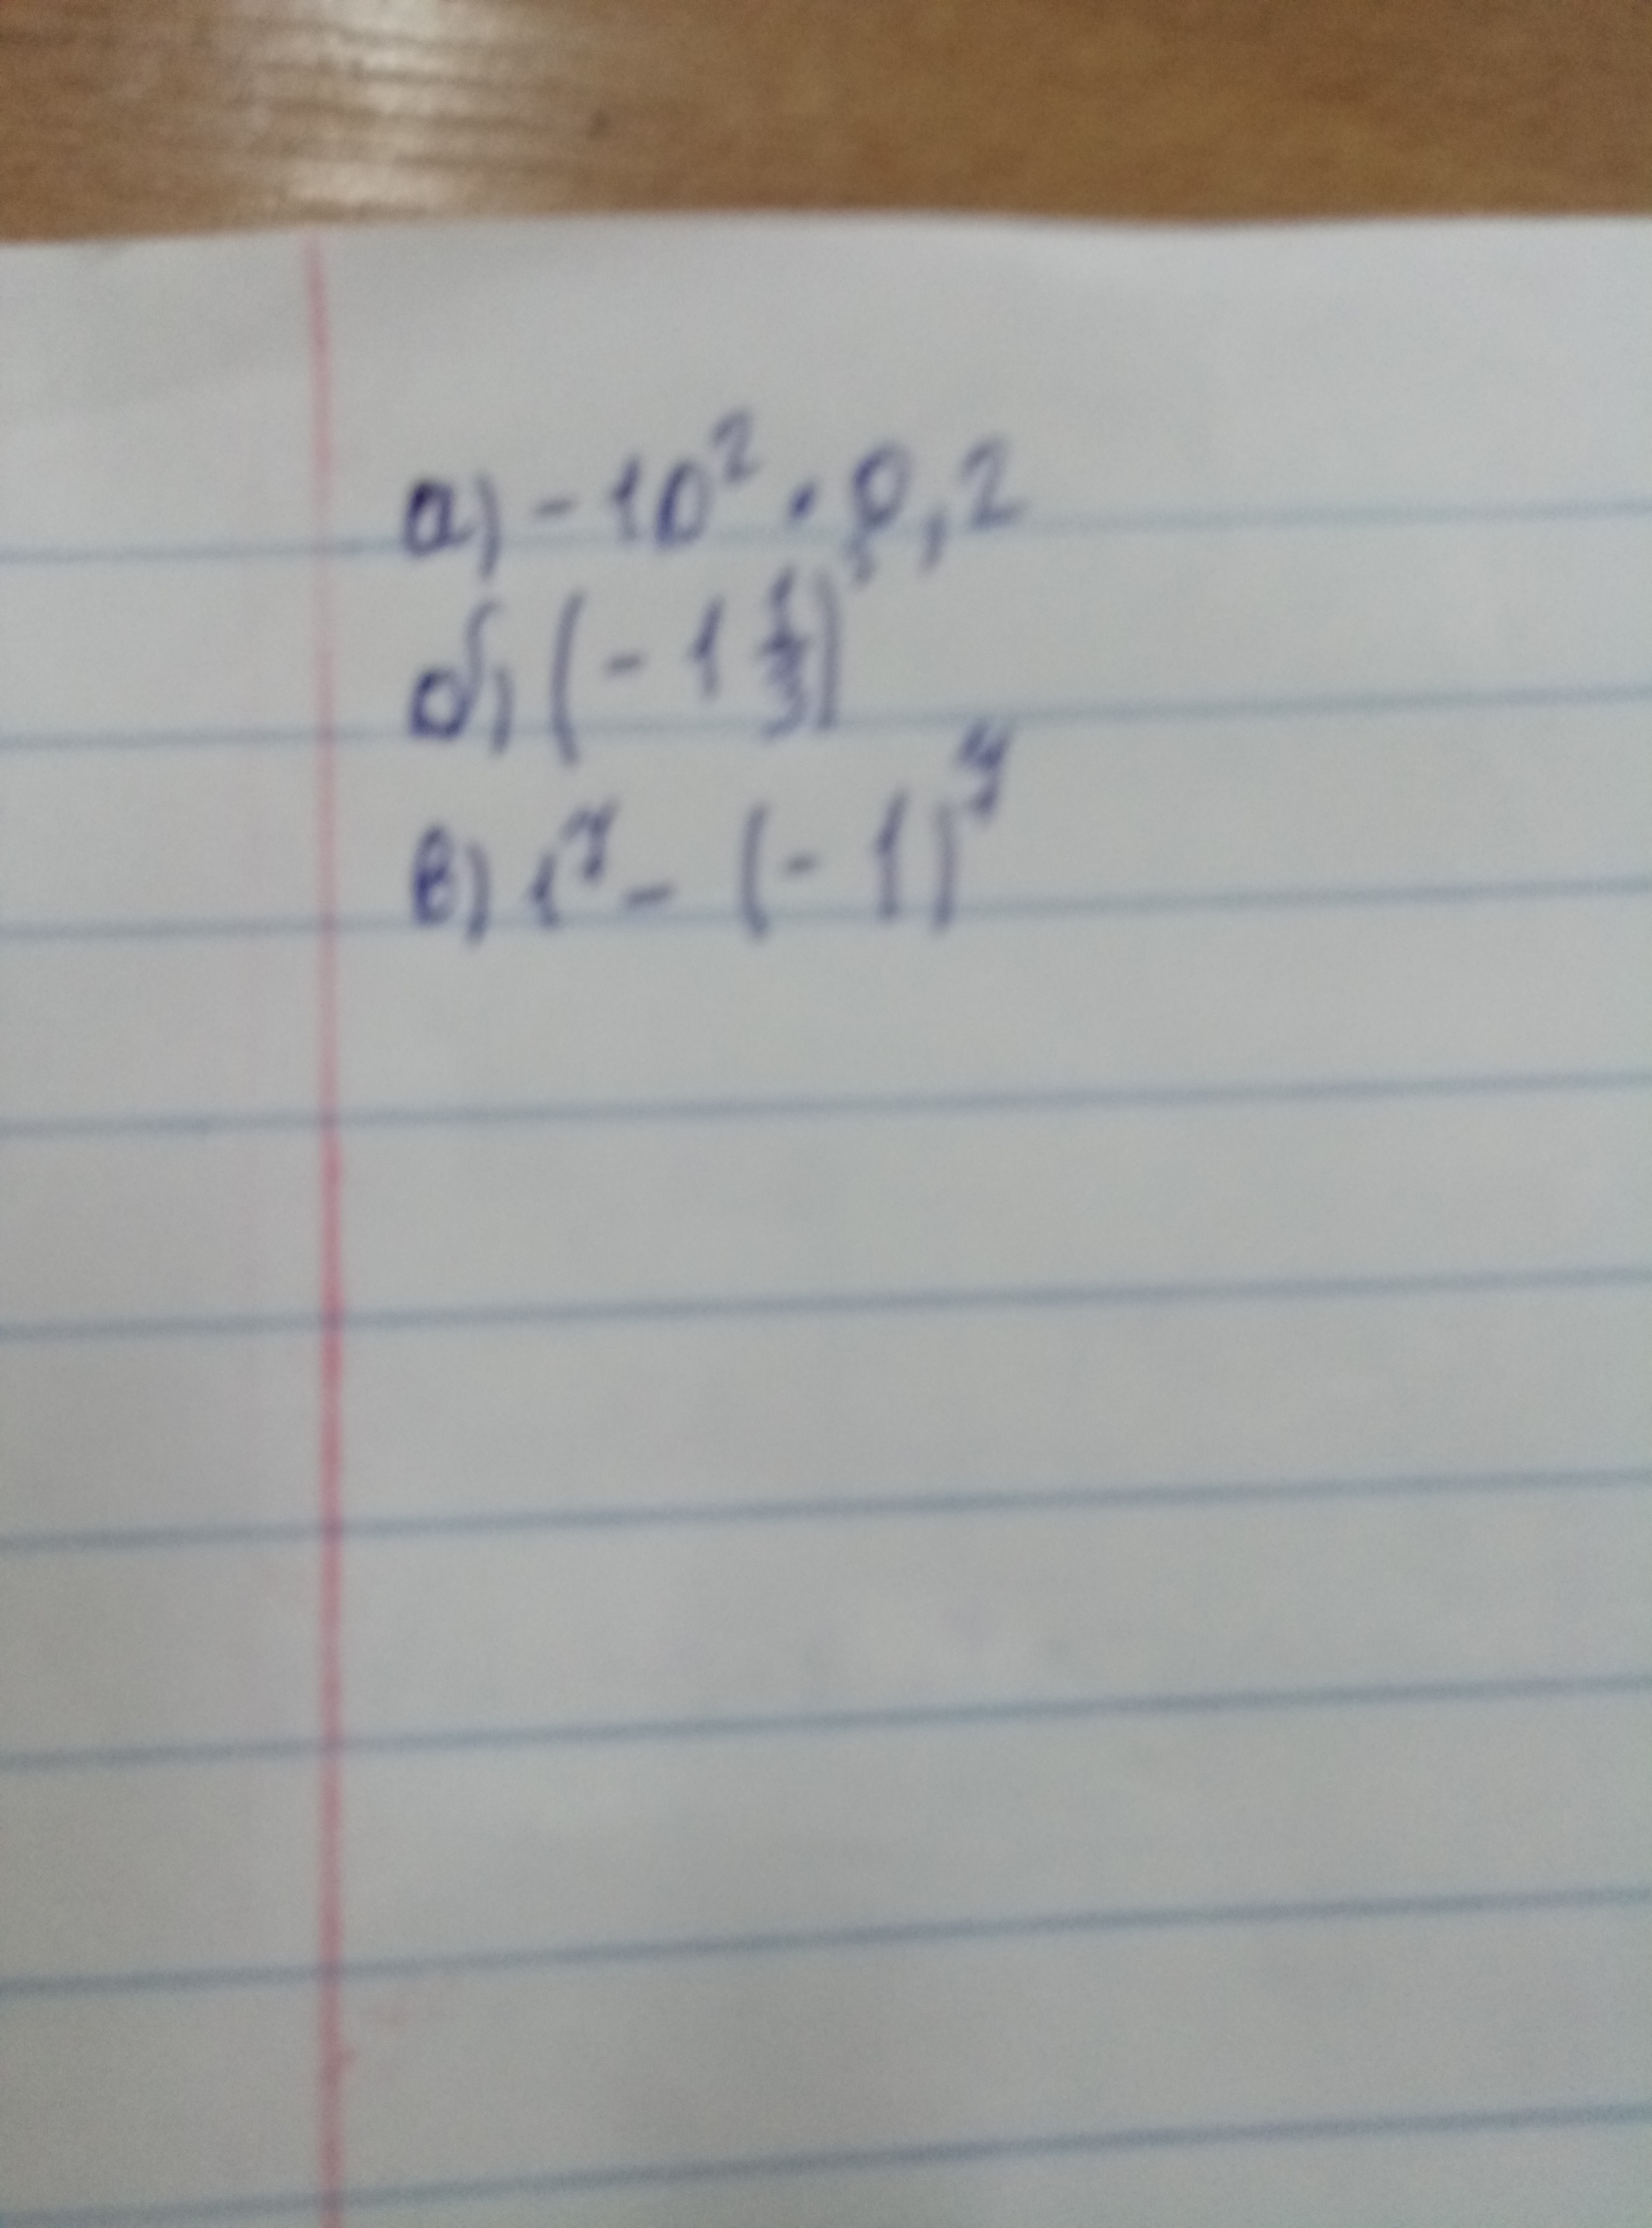 а) - 10² · 0,2
б) (- 1 1/3)³
в) 1⁷ - (- 1)⁷